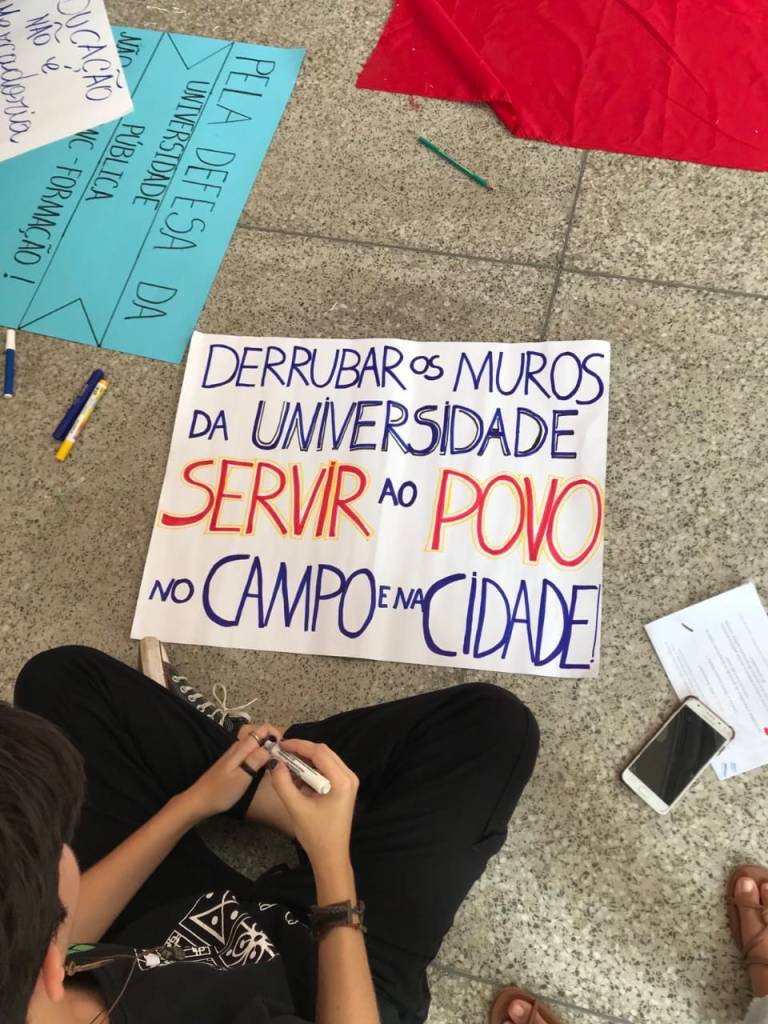 DUCAÇÃO
NÃO é
Mercadoria
PELA DEFESA DA
UNIVERSIDADE
PÚBLICA
NÃO
MC - FORMAÇÃO!
DERRUBAR OS MUROS
DA UNIVERSIDADE
SERVIR AO POVO
NO CAMPO E NA CIDADE!